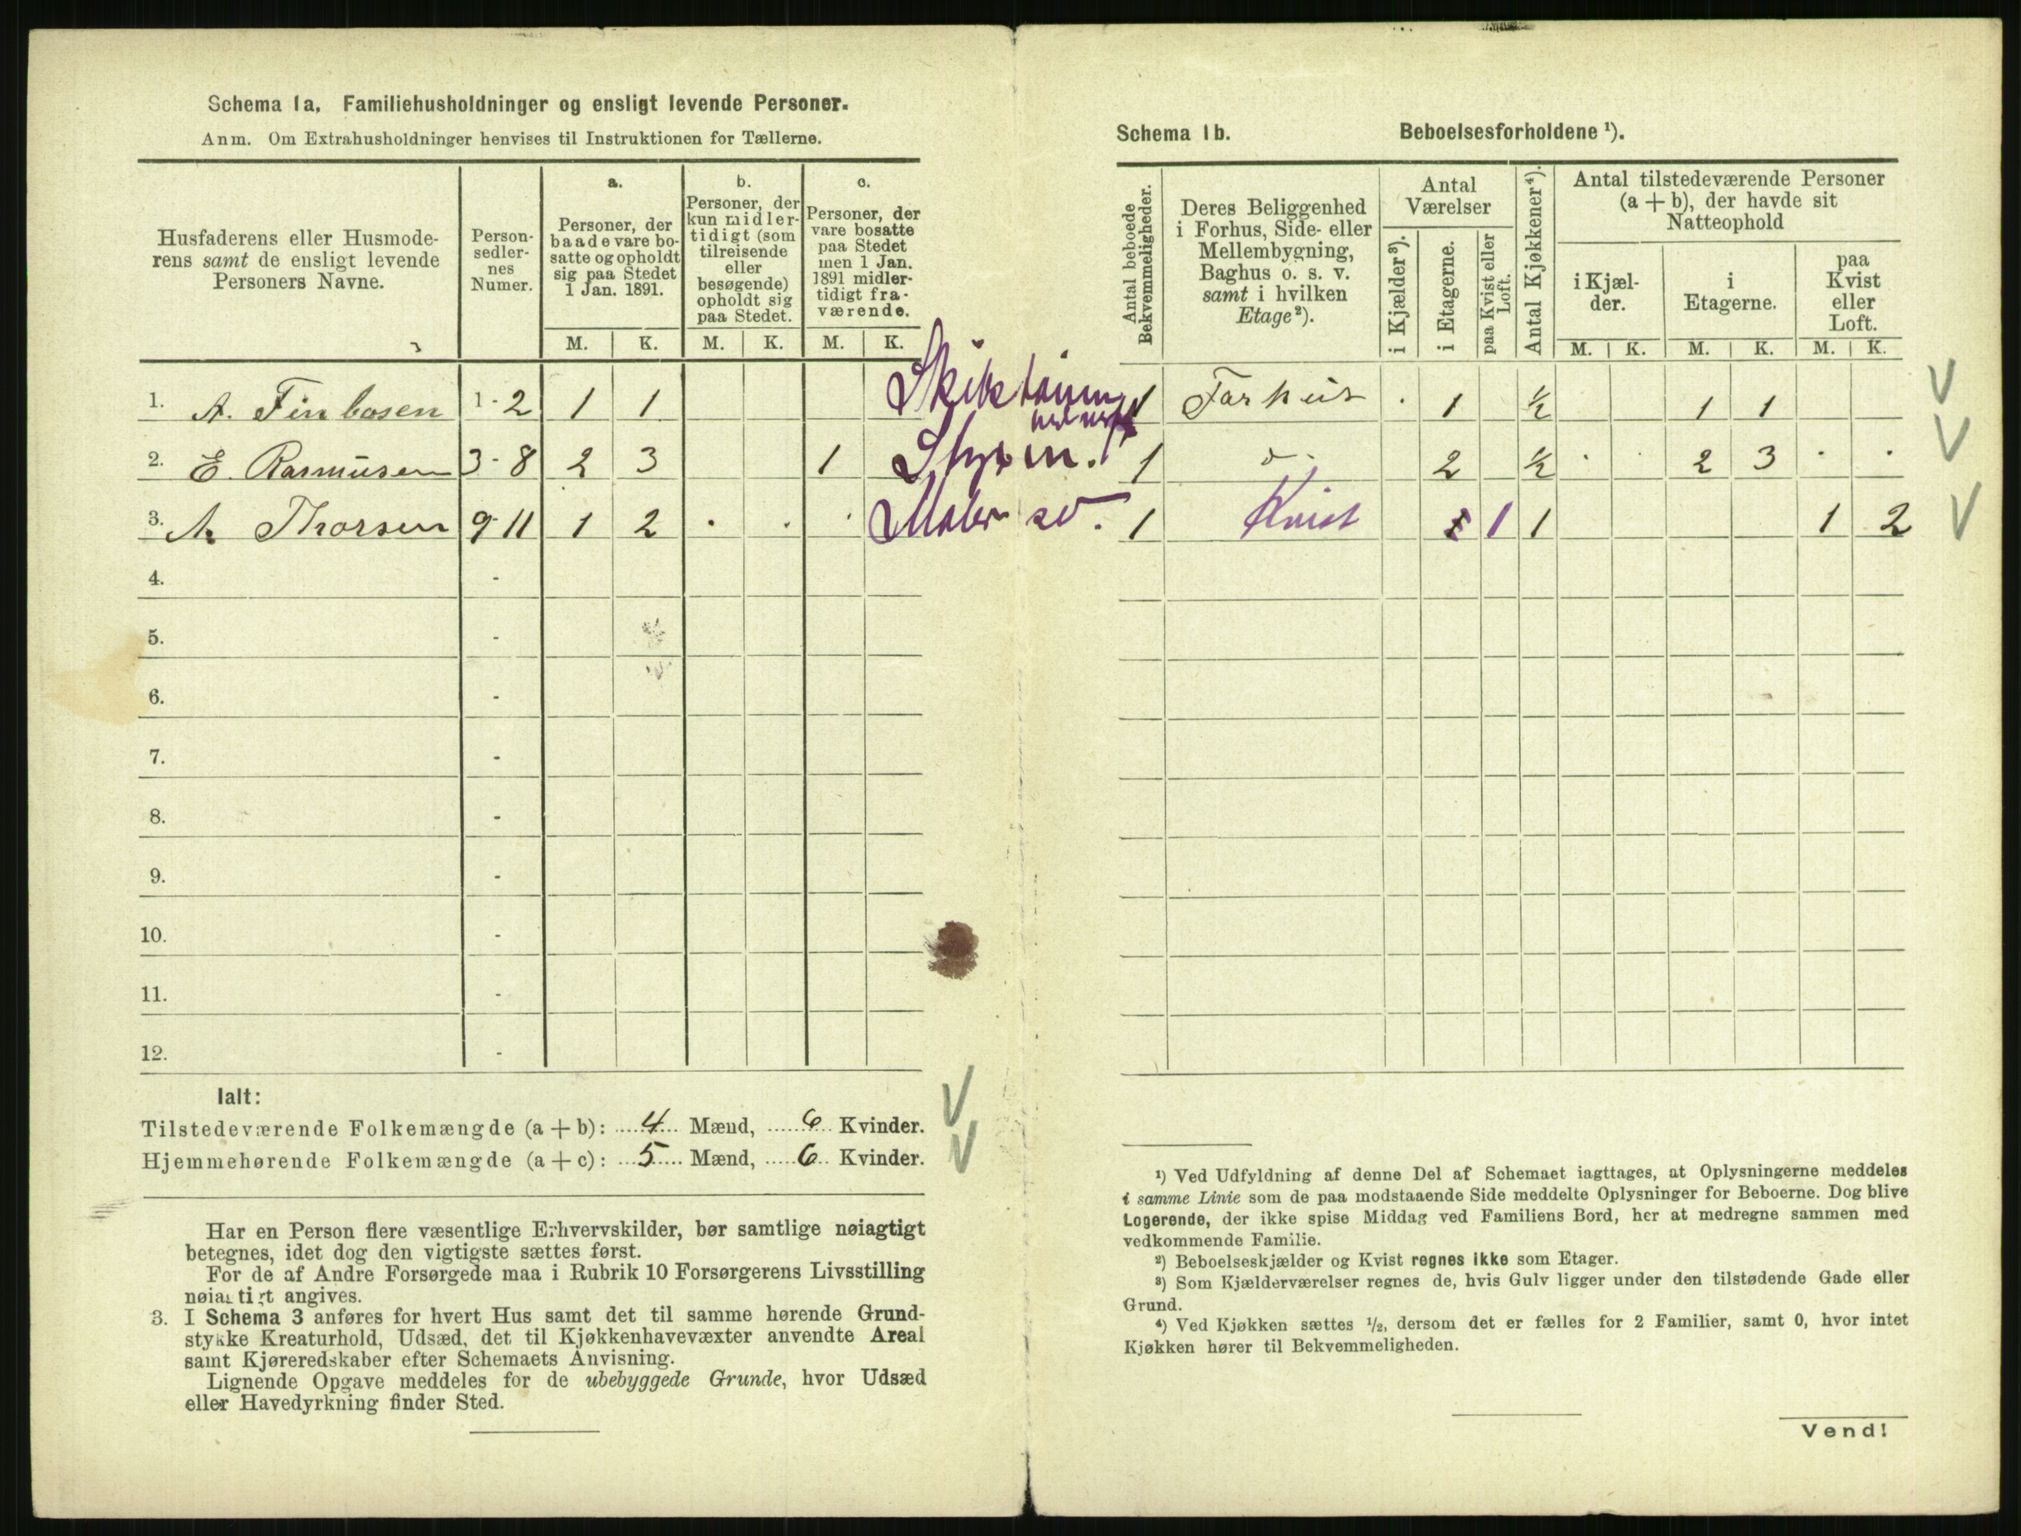 Schema 1a. Familiehusholdninger og ensligt levende Personer.
Anm. Om Extrahusholdninger henvises til Instruktionen for Tællerne.
Husfaderens eller Husmode-
rens samt de ensligt levende
Personers Navne.
Person-
sedler-
nes
Numer.
a.
Personer, der
baade vare bo-
satte og opholdt
sig paa Stedet
1 Jan. 1891.
b.
Personer, der
kun midler-
tidigt (som
tilreisende
eller
besøgende)
opholdt sig
paa Stedet.
c.
Personer, der
vare bosatte
paa Stedet
men 1 Jan.
1891 midler-
tidigt fra-
værende.
M. K. M. K. M. K.
1. A. Finbosen 1-2 1 1
2. E. Rasmusen 3-8 2 3 1
3. A. Thorsen 9-11 1 2 Maler sv.
4. -
5. -
6. -
7. -
8. -
9. -
10. -
11. -
12. -
Ialt:
Tilstedeværende Folkemængde (a + b): 4 Mænd, 6 Kvinder.
Hjemmehørende Folkemængde (a + c): 5 Mænd, 6 Kvinder.
Har en Person flere væsentlige Erhvervskilder, bør samtlige nøiagtigt
betegnes, idet dog den vigtigste sættes først.
For de af Andre Forsørgede maa i Rubrik 10 Forsørgerens Livsstilling
nøiagtigt angives.
3. I Schema 3 anføres for hvert Hus samt det til samme hørende Grund-
stykke Kreaturhold, Udsæd, det til Kjøkkenhavevæxter anvendte Areal
samt Kjøreredskaber efter Schemaets Anvisning.
Lignende Opgave meddeles for de ubebyggede Grunde, hvor Udsæd
eller Havedyrkning finder Sted.
Schema 1b. Beboelsesforholdene ¹).
Antal beboede
Bekvemmeligheder.
Deres Beliggenhed
i Forhus, Side- eller
Mellembygning,
Baghus o. s. v.
samt i hvilken
Etage²).
Antal
Værelser
i Kjælder³).
i Etagerne.
paa Kvist eller
Loft.
Antal Kjøkkener⁴).
Antal tilstedeværende Personer
(a + b), der havde sit
Natteophold
i Kjæl-
der.
i
Etagerne.
paa
Kvist
eller
Loft.
M. K. M. K. M. K.
1 Forhus 1 ½ 1 1
1 d. 2 ½ 2 3
1 Kvist 1 1 1 2
¹) Ved Udfyldning af denne Del af Schemaet iagttages, at Oplysningerne meddeles
i samme Linie som de paa modstaaende Side meddelte Oplysninger for Beboerne. Dog blive
Logerende, der ikke spise Middag ved Familiens Bord, her at medregne sammen med
vedkommende Familie.
²) Beboelseskjælder og Kvist regnes ikke som Etager.
³) Som Kjælderværelser regnes de, hvis Gulv ligger under den tilstødende Gade eller
Grund.
⁴) Ved Kjøkken sættes ½, dersom det er fælles for 2 Familier, samt 0, hvor intet
Kjøkken hører til Bekvemmeligheden.
Vend!